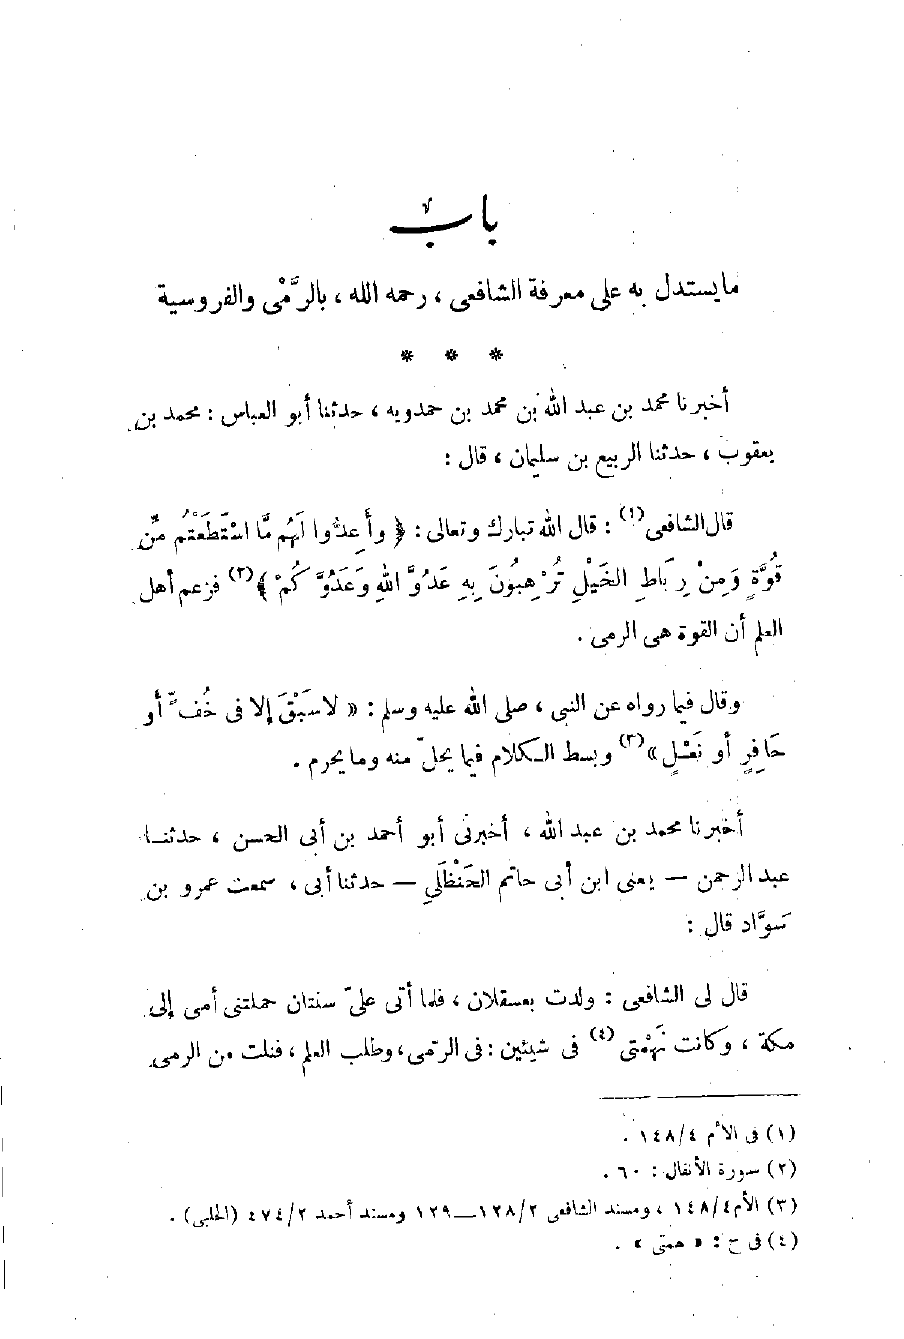 باب
ما يستدل به على معرفة الشافعى ، رحمه الله ، بالرَّمْى والفروسية
* * *
أخبرنا محمد بن عبد الله بن محمد بن حمدويه ، حدثنا أبو العباس : محمد بن
يعقوب ، حدثنا الربيع بن سليمان ، قال :
قال الشافعى (١) : قال الله تبارك وتعالى : ﴿ وأَعِدُّوا لَهُم مَّا اسْتَطَعْتُم مِّن
قُوَّةٍ وَمِنْ رِبَاطِ الخَيْلِ تُرْهِبُونَ بِهِ عَدُوَّ اللهِ وَعَدُوَّكُمْ ﴾ (٢) فزعم أهل
العلم أن القوة هى الرمى .
وقال فيما رواه عن النبى ، صلى الله عليه وسلم : « لاسَبَقَ إلا فى خُفٍّ أو
حَافِرٍ أو نَصْلٍ » (٣) وبسط الكلام فيما يحلّ منه وما يحرم .
أخبرنا محمد بن عبد الله ، أخبرنى أبو أحمد بن أبى الحسن ، حدثنا
عبد الرحمن – يعنى ابن أبى حاتم الحَنْظَلِي – حدثنا أبى ، سمعت عمرو بن
سَوَّاد قال :
قال لى الشافعى : ولدت بعسقلان ، فلما أتى علىّ سنتان حملتنى أمى إلى
مكة ، وكانت نَهْمَتى (٤) فى شيئين : فى الرّمى ، وطلب العلم ، فنلت من الرمى
(١) فى الأم ١٤٨/٤ .
(٢) سورة الأنفال : ٦٠ .
(٣) الأم ١٤٨/٤ ، ومسند الشافعى ١٢٨/٢ــ١٢٩ ومسند أحمد ٤٧٤/٢ (الحلبى) .
(٤) فى ح : « همتى » .